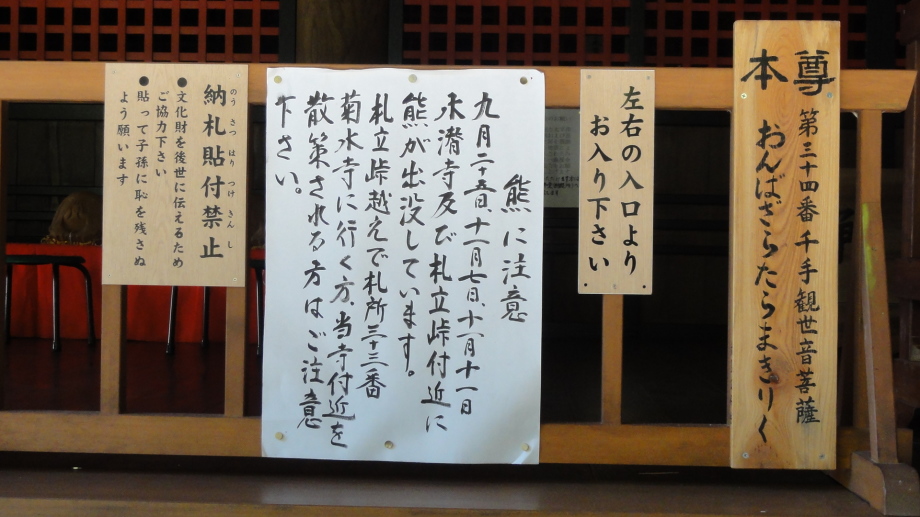 本尊
第三十四番 千手観世音菩薩
おんばざらたらまきりく
左右の入口より
お入り下さい
熊に注意
九月二十五日、十一月七日、十一月十一日
水潜寺及び札立峠付近に
熊が出没しています。
札立峠越えで札所三十三番
菊水寺に行く方、当寺付近を
散策される方はご注意
下さい。
納札貼付禁止
のう さつ はり つけ きん し
●文化財を後世に伝えるため
ご協力下さい
●貼って子孫に恥を残さぬ
よう願います